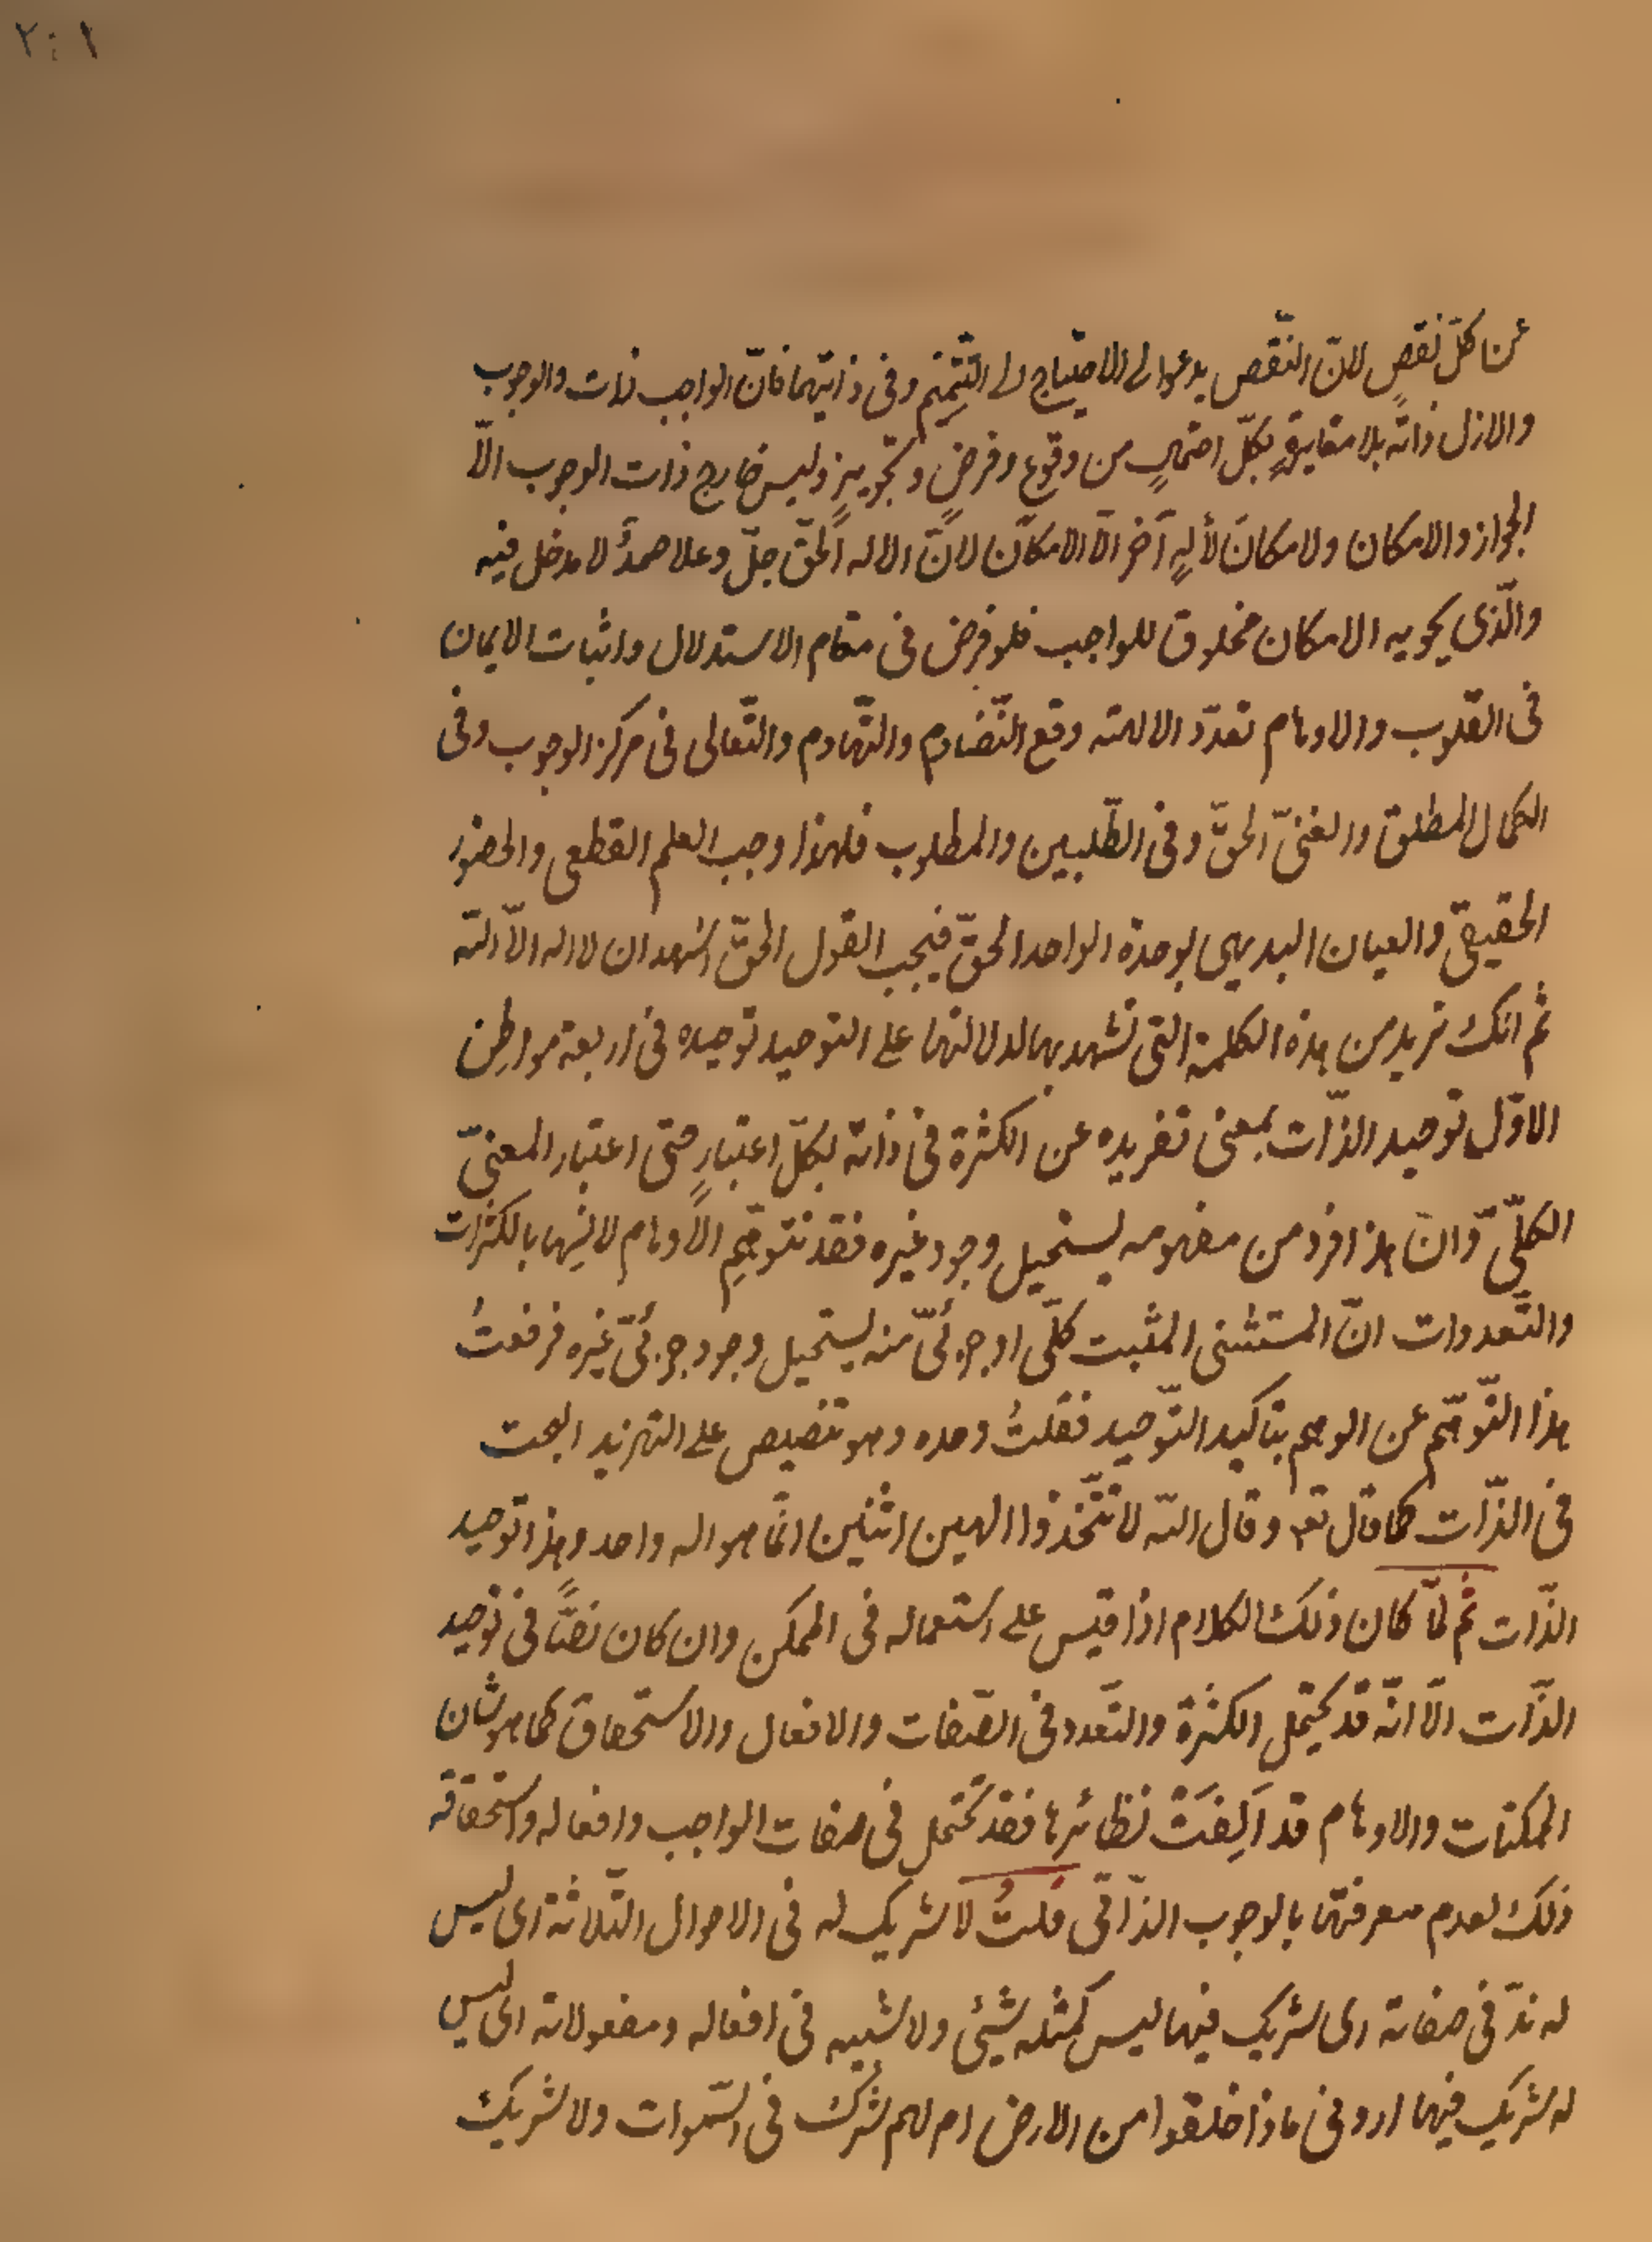 ٢٠١
عن كلّ نقصٍ لانّ النّقص يدعوا الى الاحتياج الى التّتميم وفى ذاتيهما فانّ الواجب ذات والوجوب
والازل ذاته بلا مغايرةٍ بكلّ احتمالٍ من وقوعٍ وفرضٍ وتجويزٍ وليس خارج ذات الوجوب الّا
الجواز والامكان ولا مكانَ لألهٍ آخر الّا الامكان لانّ الاله الحقّ جلّ وعلا صمدٌ لا مدخل فيه
والّذى يحويه الامكان مخلوق للواجب فلو فرض فى مقام الاستدلال واثبات الايمان
فى القلوب والاوهام تعدّد الالهة وقع التّضادم والتّهادم والتّعالى فى مركز الوجوب وفى
الكمال المطلق والغنىّ الحقّ وفى الطّلبين والمطلوب فلهذا وجب العلم القطعى والحضور
الحقيقىّ والعيان البديهى بوحدة الواحد الحقّ فيجب القول الحقّ اشهد ان لا اله الّا الله
ثم انّك تريد من هذه الكلمة التى تشهد بها لدلالتها على التوحيد توحيده فى اربعة مواطِن
الاوّل توحيد الذّات بمعنى تفريده عن الكثرة فى ذاته بكلّ اعتبارٍ حتى اعتبار المعنىّ
الكلّىّ وّانّ هذا فرد من مفهومه يستحيل وجود غيره فقد تتوهّم الاوهام لانسها بالكثرات
والتّعددات انّ المستثنى المثبت كلّى او جزئىّ منه يستحيل وجود جزئىّ غيره فرفعتُ
هذا التّوهّم عن الوهم بتاكيد التّوحيد فقلتُ وحده وهو تنصيص على التفريد البحت
فى الذّات كما قال تعـ وقال الله لا تتّخذوا الهين اثنين انّما هو اله واحد وهذا توحيد
الذّات ثم لمّا كان ذلك الكلام اذا قيس على استعماله فى الممكن وان كان نصًّا فى توحيد
الذّات الّا انّه قد يحتمل الكثرة والتّعدد فى الصّفات والافعال والاستحقاق كما هو شان
الممكنات والاوهام قد اَلِفَتْ نظائرها فقد تحتمل فى صفات الواجب وافعاله واستحقاقه
ذلك لعدم معرفتها بالوجوب الذّاتى قلتُ لا شريك له فى الاحوال الثّلاثة اى ليس
له ندّ فى صفاته اى شريك فيها ليس كمثله شيئى ولا شبيه فى افعاله ومفعولاته اى ليس
له شريك فيها ارونى ماذا خلقوا من الارض ام لهم شرك فى السّموات ولا شريك